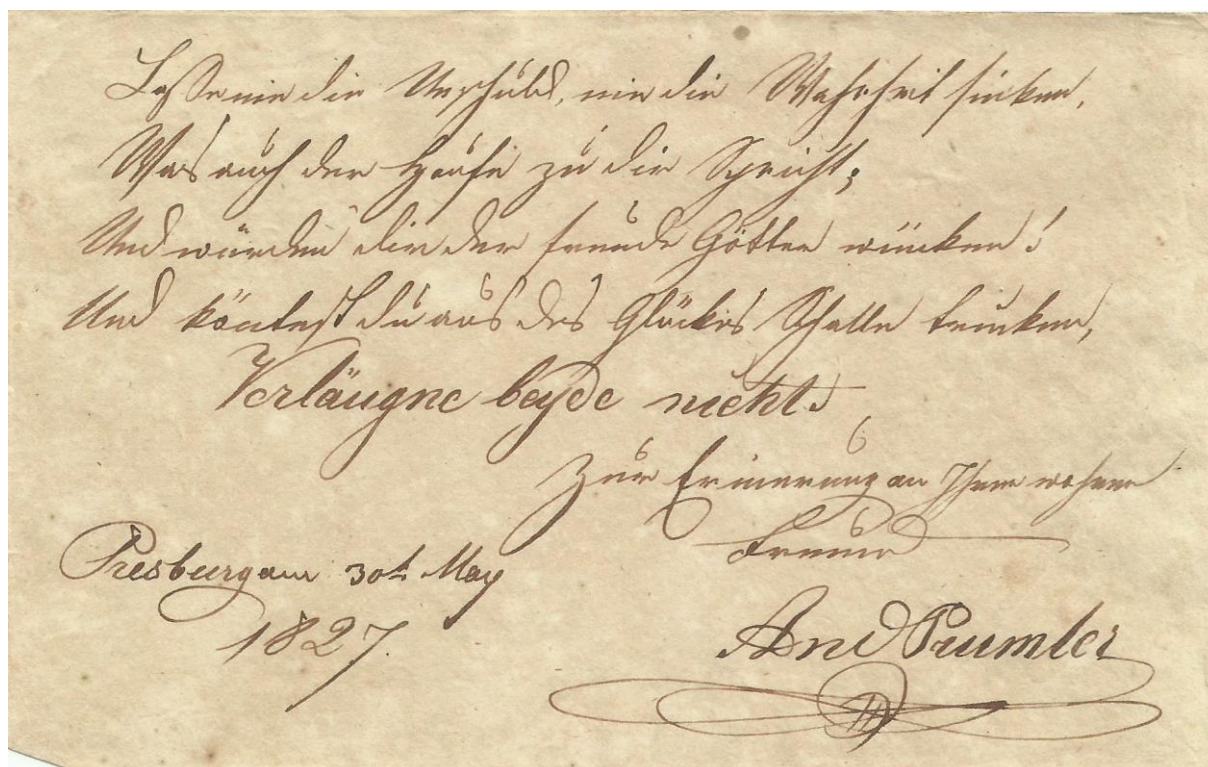 Lasse nie die Unschuld, nie die Wahrheit sinken,
Was auch der Haufe zu dir Spricht;
Und würden dir der freude Götter wincken!
Und köntest du aus des Glückes Schalle trinken,
Verläugne beyde nicht.
Zur Erinerung an Ihren wahren
Freund
Presburg am 30t May
1827.
And